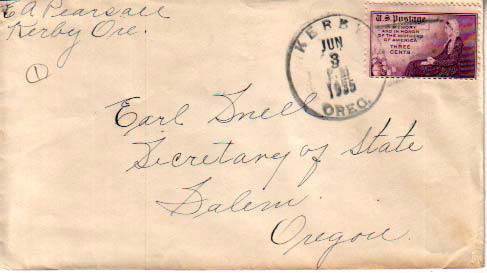 E A Pearsall
Kerby Ore.
1
KERBY
JUN
3
P.M
1935
OREG.
U.S. Postage
IN MEMORY
AND IN HONOR
OF THE MOTHERS
OF AMERICA
THREE
CENTS
Earl Snell
Secretary of State
Salem
Oregon.